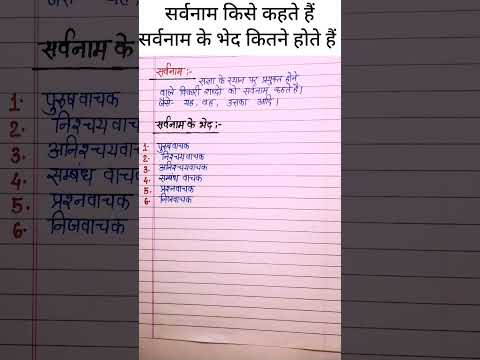 सर्वनाम किसे कहते हैं
सर्वनाम के भेद कितने होते हैं
सर्वनाम :-
संज्ञा के स्थान पर प्रयुक्त होने
वाले विकारी शब्दों को सर्वनाम कहते हैं।
जैसे- यह, वह, उसका आदि।
सर्वनाम के भेद :-
1. पुरुषवाचक
2. निश्चयवाचक
3. अनिश्चयवाचक
4. सम्बंध वाचक
5. प्रश्नवाचक
6. निजवाचक
सर्वनाम के
1. पुरुषवाचक
2. निश्चयवाच
3. अनिश्चयवा
4. सम्बंध वाचक
5. प्रश्नवाचक
6. निजवाचक